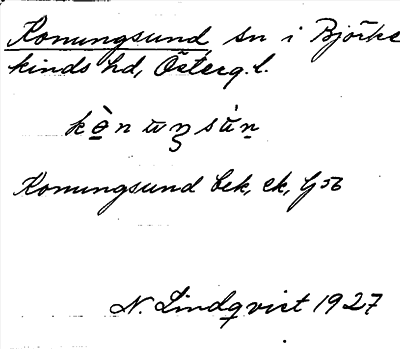 Konungsund sn i Björke
kinds hd, Österg. l.
Konungsund bek, ek,
N. Lindqvist 1927